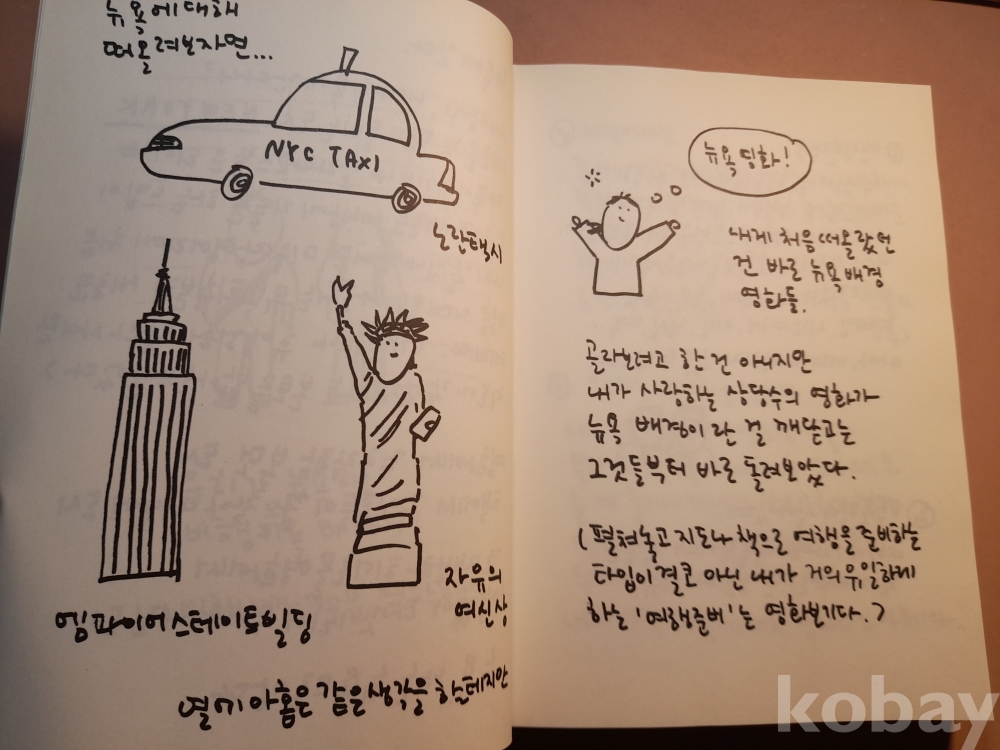 뉴욕에 대해
떠올려보자면...
NYC TAXI
노란택시
엠파이어스테이트빌딩
자유의
여신상
열에 아홉은 같은 생각을 할테지만
뉴욕영화!
내게 처음 떠올랐던
건 바로 뉴욕배경
영화들.
골라보려고 한 건 아니지만
내가 사랑하는 상당수의 영화가
뉴욕 배경이란 걸 깨닫고는
그것들부터 바로 돌려보았다.
(펼쳐놓고 지도나 책으로 여행을 준비하는
타입이 결코 아닌 내가 거의 유일하게
하는 '여행준비'는 영화보기다.)
kobay